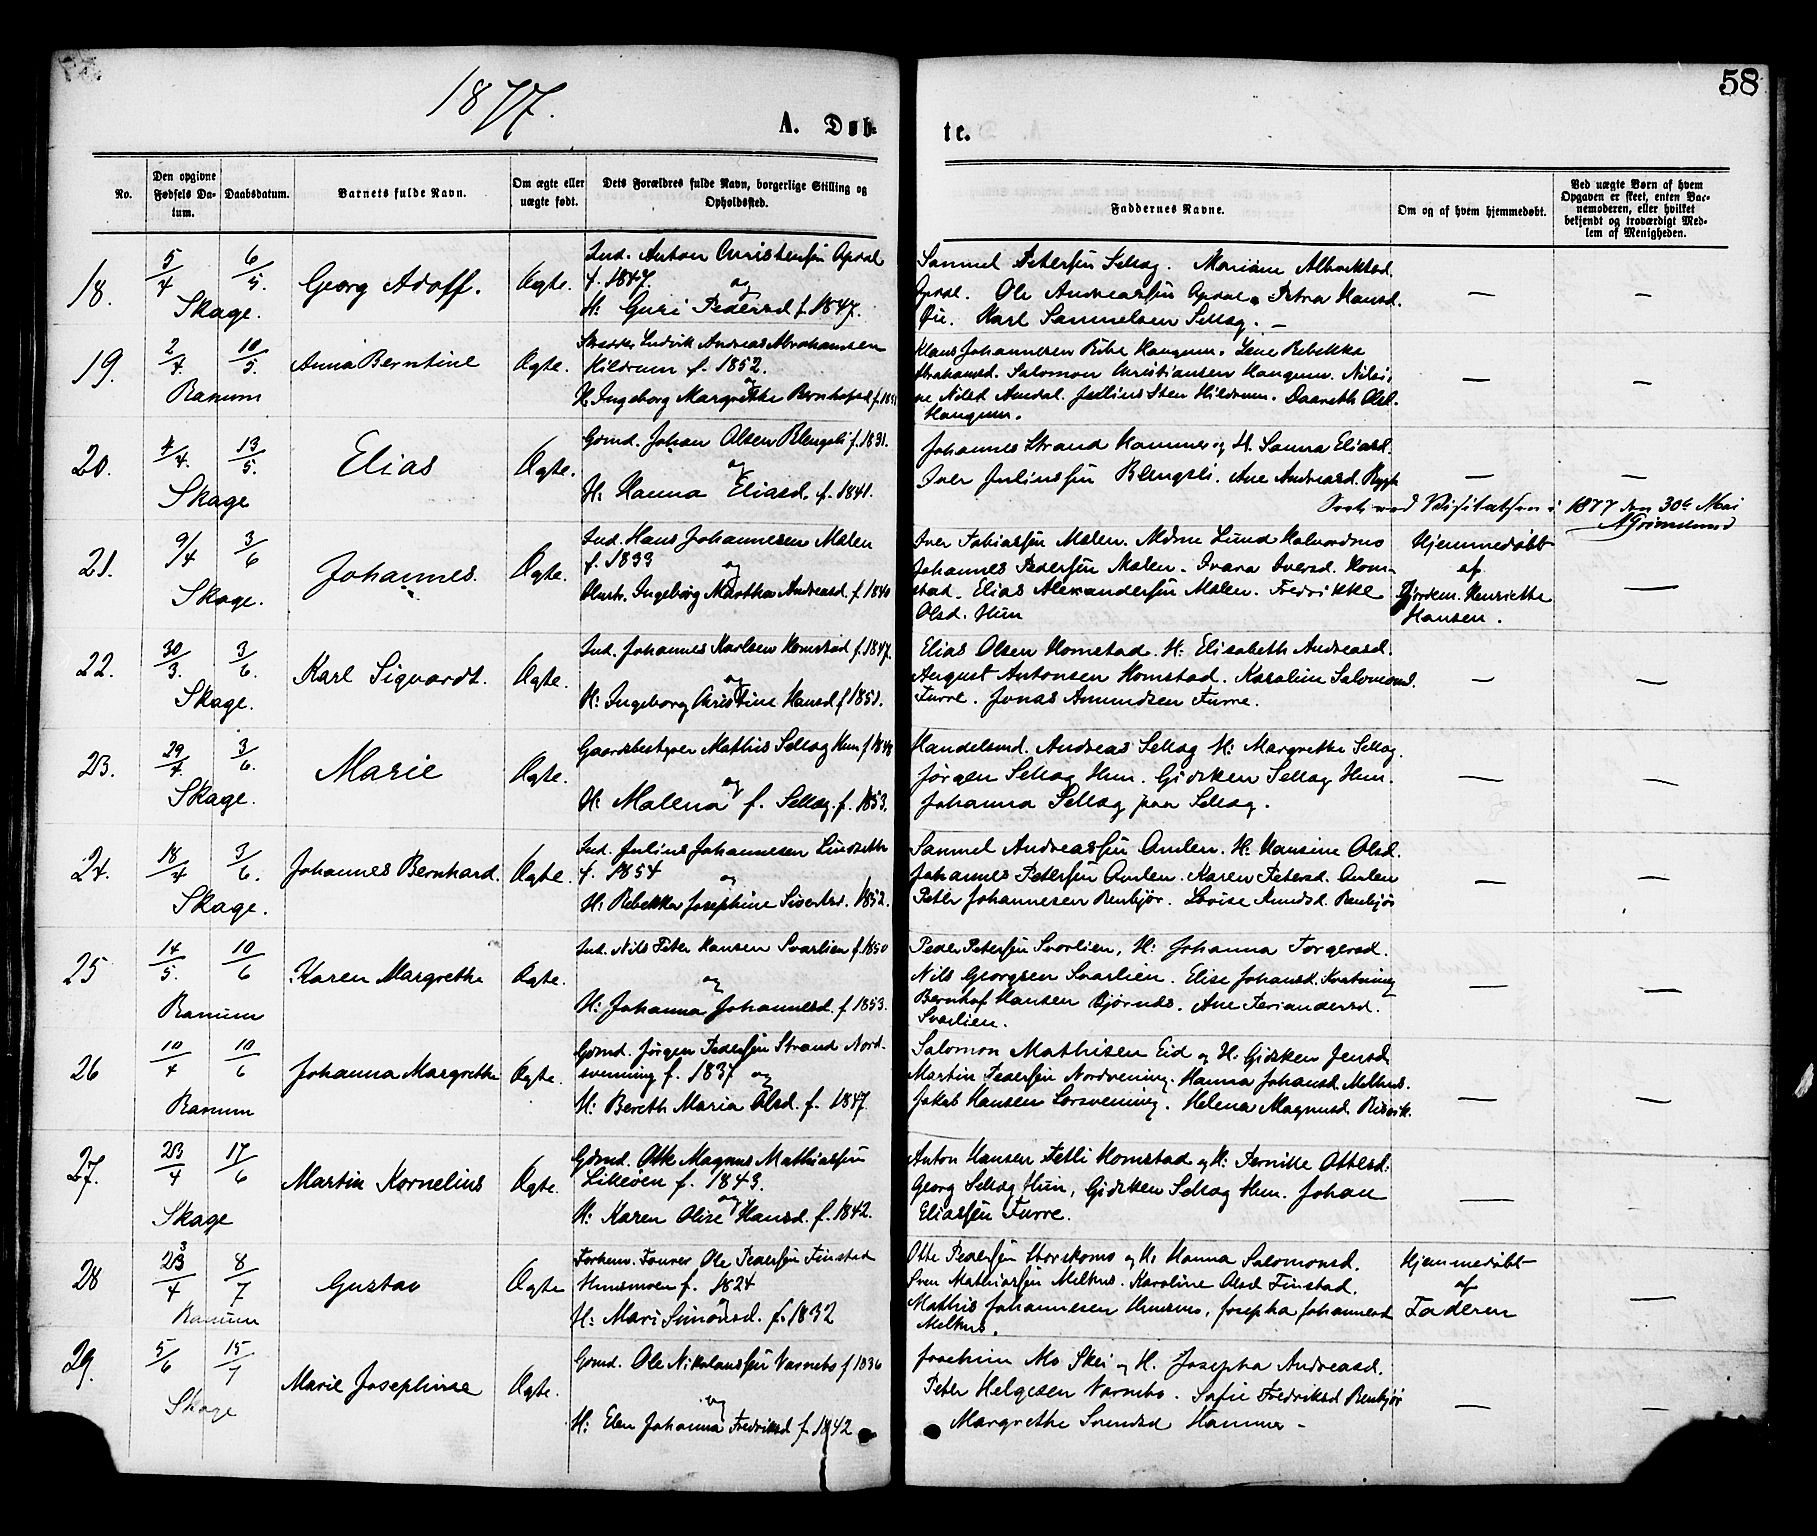 58
1877.
A. Døb-
te.
No.
Den opgivne Fødsels Da-tum.
Daabsdatum.
Barnets fulde Navn.
Om ægte eller uægte født.
Dets Forældres fulde Navn, borgerlige Stilling og Opholdssted.
Faddernes Navne.
Om og af hvem hjemmedøbt.
Ved uægte Børn af hvem Opgaven er skeet, enten Bar-nemoderen, eller hvilket bekjendt og troværdigt Med-lem af Menigheden.
18. 5/4 6/5. Georg Adolf. Ægte.
Skage.
Ind. Anton Christensen Opdal
f. 1847. og
H: Guri Pedersd f. 1847.
Samuel Petersen Sellæg. Mariane Albriktsd.
Opdal. Ole Andreassen Opdal og Petra Hansd.
Øie. Karl Samuelsen Sellæg. —
19. 2/4. 10/5. Anna Berntine Ægte.
Ranum
Ludvik Andreas Abrahamsen
Hildrum f. 1852. og
H. Ingeborg Margrethe Bernhofsd f. 185
Klaus Johannesen Ribe Haugum. Lene Rebekka
Abrahamsd. Salomon Christiansen Haugum. Nikoli-
ne Nilsd. Amdal. Julius Sten Hildrum. Daareth Olsd.
Haugum.
20. 4/4. 13/5. Elias Ægte.
Skage
Gomd. Johan Olsen Blengsli f. 1831.
og
H: Hanna Eliasd. f. 1841.
Johannes Strand Hammer og H. Sanna Eliasd.
Iver Juliussen Blengsli. Ane Andreasd. Rygh
Seet ved Visitatsen i 1877 den 30te Mai
AGrimelund
21. 9/4 3/6 Johannes. Ægte.
Skage.
Ind. Hans Johannesen Mælen
f. 1833 og
Hustr. Ingeborg Martha Andreasd. f. 1840
Iver Tobiassen Mælen. Mdme Lund Halvordmo
Johannes Pedersen Mælen. Ivara Iversd. Hom-
stad. Elias Alexandersen Mælen. Fredrikke
Olsd. Hun
Hjemmedøbt
af
Gjordem. Henriette
Hansen.
22. 30/3. 3/6. Karl Sigvardt. Ægte.
Skage.
Ind. Johannes Karlsen Homstad f. 1847.
og
H: Ingeborg Christine Hansd f 1851.
Elias Olsen Homstad. H: Elisabeth Andreasd.
August Antonsen Homstad. Karoline Salomonsd.
Furre. Jonas Amundsen Furre.
23. 29/4 3/6. Marie Ægte.
Skage.
Gaardsbestyrer Mathis Sellæg Hun f 1848
og
H: Malena f. Sellæg. f. 1853.
Handelsmd. Andreas Sellæg H: Margrethe Sellæg.
Jørgen Sellæg Hun. Gidsken Sellæg Hun.
Johanna Sellæg paa Sellæg.
24. 18/4 3/6. Johannes Bernhard. Ægte.
Skage.
Ind. Julius Johannesen Lindseth
f. 1854 og
H: Rebekka Josephine Sivertsd. 1852.
Samuel Andreassen Amlen. H: Hansine Olsd.
Johannes Petersen Amlen. Karen Petersd. Amlen
Peter Johannesen Renbjør. Lovise Amdsd. Renbjør
25 14/5. 10/6 Karen Margrethe Ægte.
Ranum
Ind. Nils Peter Hansen Svarlien f. 1850
og
H: Johanna Johannesd. f. 1853.
Peder Petersen Svarlien, H: Johanna Torgersd.
Nils Georgsen Svarlien. Elise Johansd. Kvatning
Bernhof Hansen Bjørnes. Ane Feriandersd.
Svarlien.
26 10/4 10/6 Johanna Margrethe Ægte.
Ranum
Gomd. Jørgen Pedersen Strand Nord-
svenning f. 1837 og
H: Bereth Maria Olsd. f. 1847.
Salomon Mathisen Eid og H: Gidsken Jensd.
Martin Pedersen Nordsvening. Hanna Johansd. Melhus.
Jakob Hansen Sørsvening. Helena Magnusd. Risvik.
27. 23/4 17/6 Martin Kornelius Ægte.
Skage
Gomd. Otte Magnus Mathiassen
Lilleøen f. 1843. og
H: Karen Olise Hansd. f. 1842.
Anton Hansen Fetli Homstad og H: Pernille Ottesd.
Georg Sellæg Hun, Gidsken Sellæg Hun. Johan
Eliassen Furre.
28 23/4 8/7 Gustav Ægte
Ranum
Forhenv. Fourer Ole Pedersen Finstad
Hunsmoen f. 1824
og
H: Mari Simonsd. f. 1832
Otte Pedersen Storskomo og H. Hanna Salomonsd.
Sven Mathiassen Melhus. Karoline Olsd Finstad.
Mathis Johannesen Hunsmo, Josepha Johannesd
Melhus.
Hjemmedøbt
af
Faderen
29. 5/6 15/7 Marie Josephine Ægte.
Skage
Gomd. Ole Nikolaussen Varnebo f 1836
og
H: Elen Johanna Fredriksd f. 1842
Joachim Mo Skei og H. Josepha Andreasd.
Peter Helgesen Varnebo. Sofie Fredriksd Renbjør
Margrethe Svendsd Hammer —